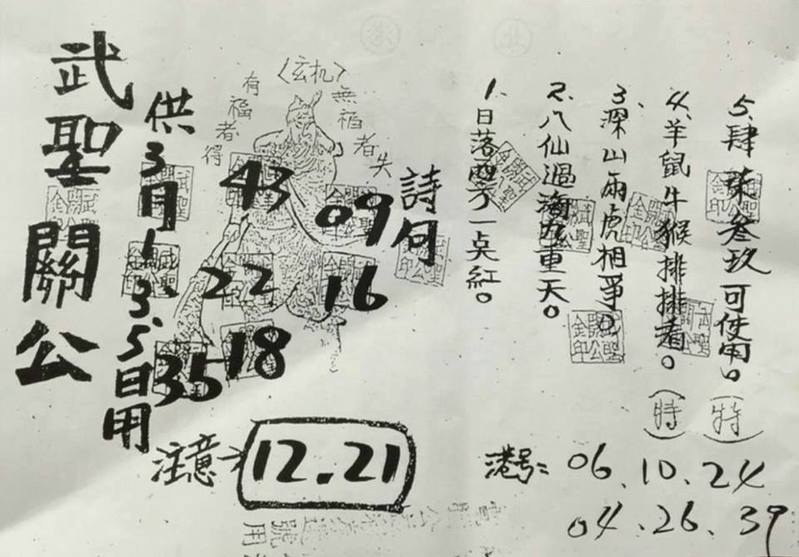 武聖關公
供3月1.3.5日用
〈玄机〉
有福者得
無福者失
43
09
22
16
35
18
注意→12.21
詩句
1.日落西方一点紅。
2.八仙過海九重天。
3.深山兩虎相爭。
4.羊鼠牛猴排排看。(特)
5.肆柒叁玖可使用。(特)
港号:06.10.24
04.26.39